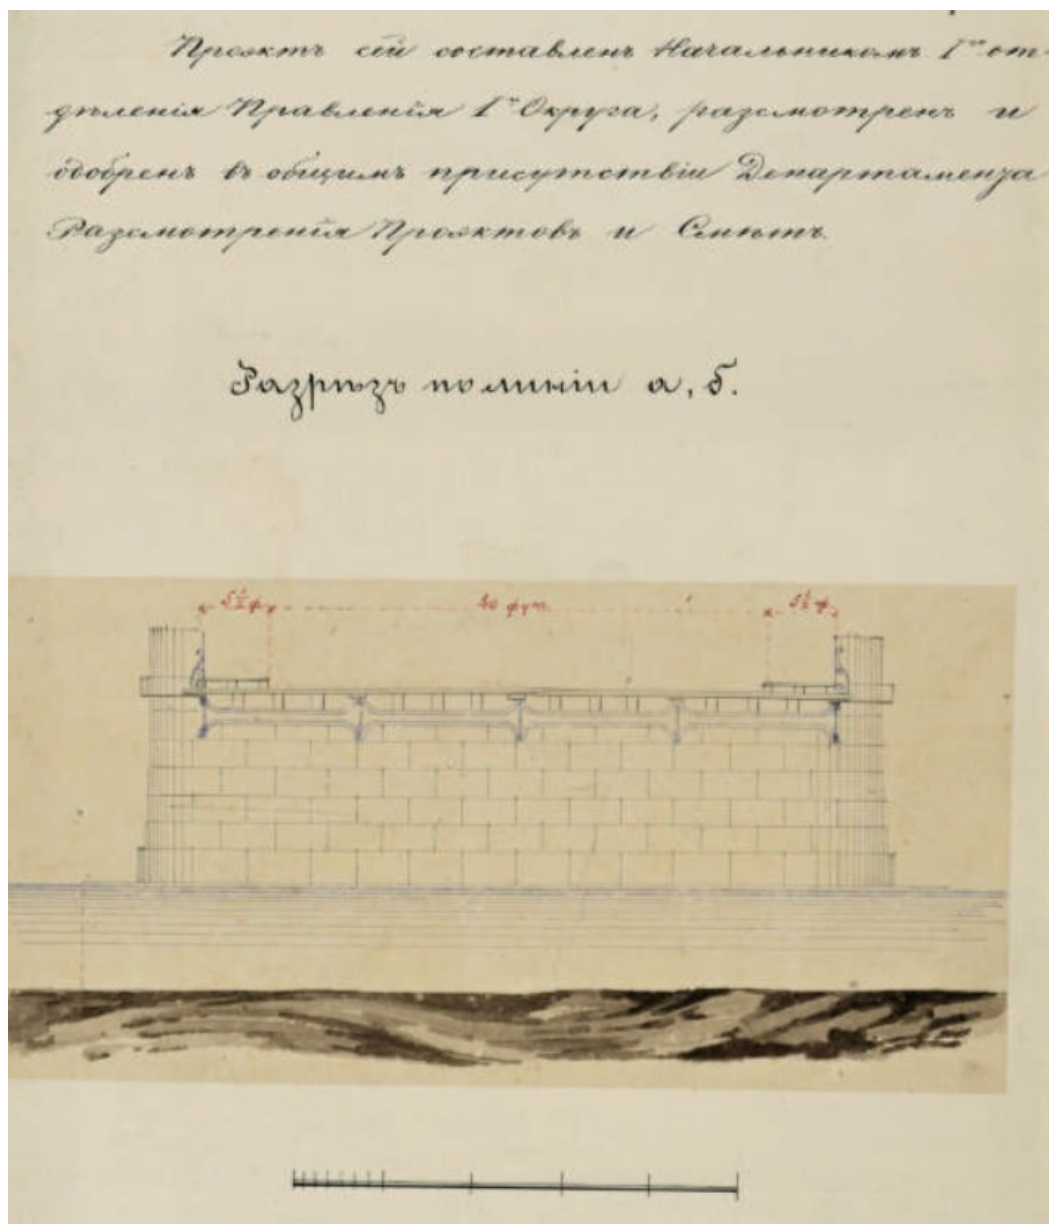 Проэктъ сей составленъ Начальникомъ Iго от-
дѣленія Правленія Iго Округа, разсмотренъ и
одобренъ въ общимъ присутствіи Департамента
Разсмотренія Проэктовъ и Смѣтъ.
Разрѣзъ по линіи а, б.
5½ ф. 40 фут. 5½ ф.